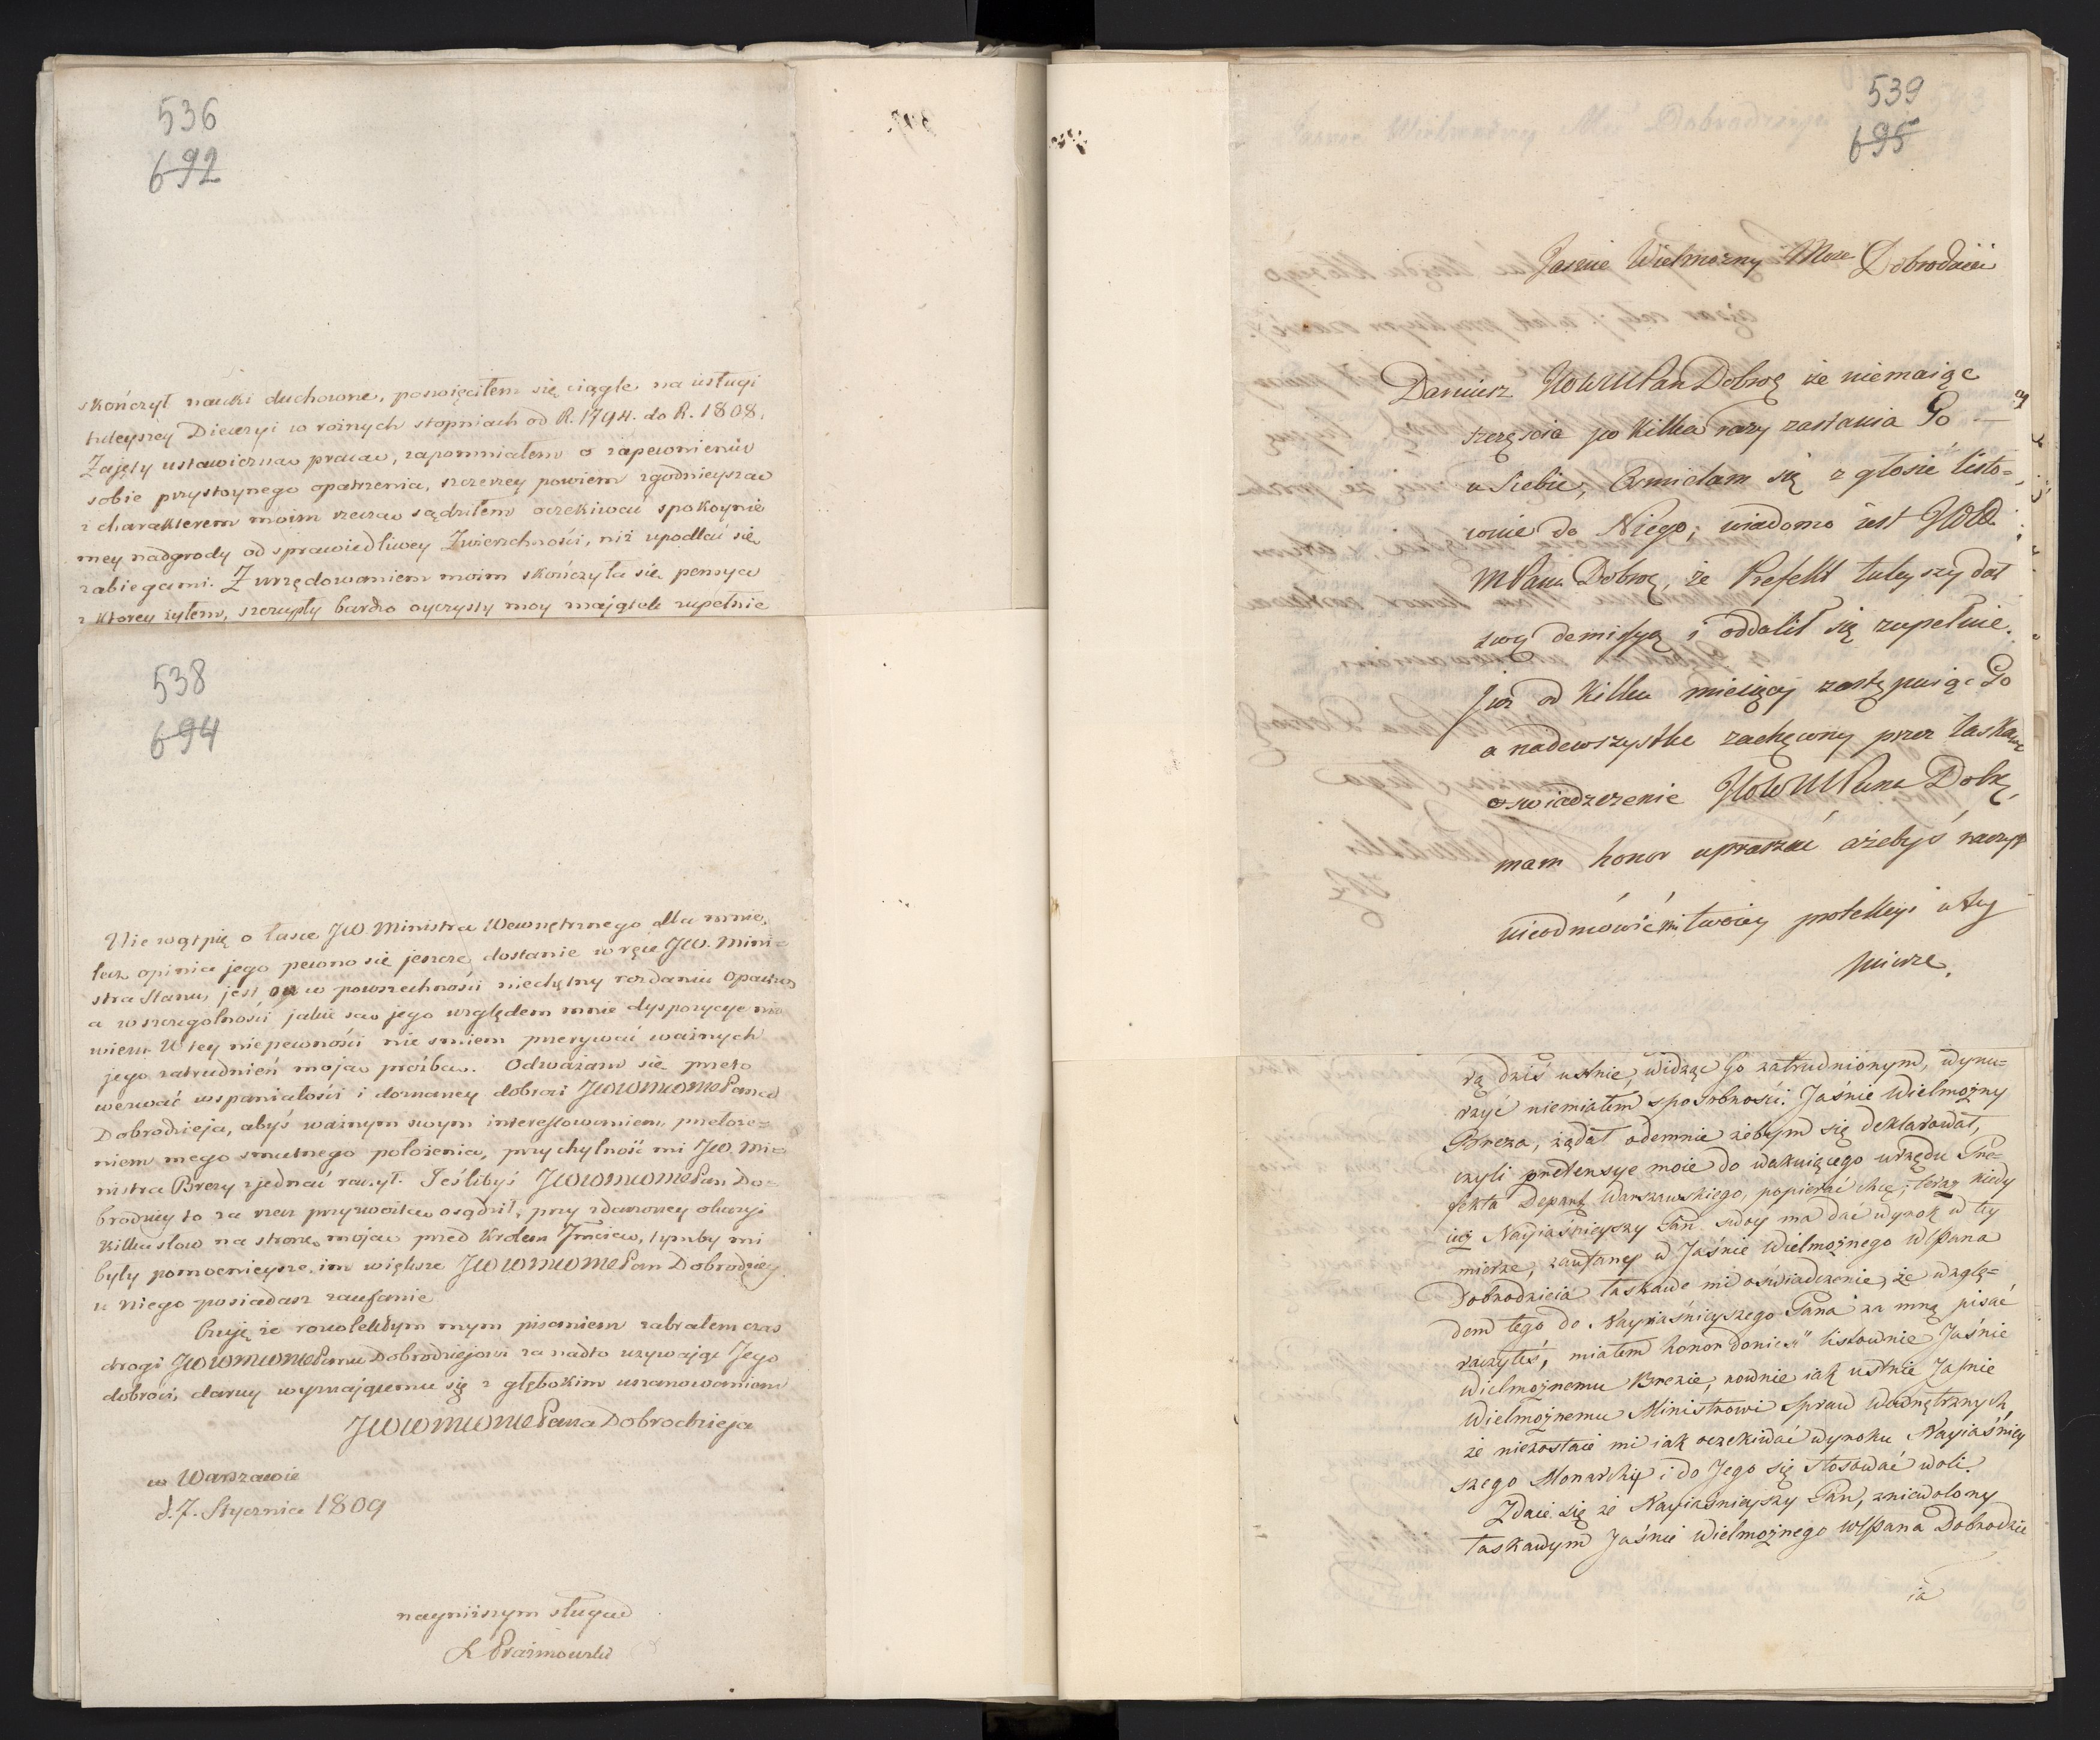 536
692
skończył nauki duchowne, poswięciłem się ciągle na usługi
tuteyszey Diecezyi w roznych stopniach od R. 1794. do R. 1808.
Zajęty ustawiczna praca, zapomniałem o zapewnieniu
sobie przystoynego opatrzenia, szczerzey powiem zgodnieysza
z charakterem moim rzecza sądziłem oczekiwać spokoynie
mey nadgrody od sprawiedliwey Zwierzchności, niż upodlać się
zabiegami. Z urzędowaniem moim skończyła się pensya
z ktorey żyłem, szczupły bardzo oyczysty moy majątek zupełnie
538
694
Nie wątpię o łasce JW. Ministra Wewnętrznego dla mnie,
lecz opinia jego pewno się jeszcze dostanie w ręce JW. Mini-
stra Stanu, jest on w powszechności niechętny rozdaniu
a w szczegolności jakie sa jego względem mnie dyspozycye nie
wiem. W tey niepewności nie smiem przerywać ważnych
jego zatrudnień moja proźba. Odważam się przeto
wezwać wspaniałości i doznaney dobroci JWWMWMPana
Dobrodzieja, abyś ważnym swym interessowaniem, przełoże-
niem mego smutnego położenia, przychylność mi JW. Mi-
nistra Brezy zjednać raczył. Jeślibyś JWWMWMPan Do-
brodziey to za rzecz przyzwoita osądził, przy zdarzoney okazyi
kilka słow na stronę moja przed Krolem Jmcia, tymby mi
były pomocnieysze, im większe JWWMWMPan Dobrodziey
u niego posiadasz zaufanie
Czuję że rozwlekłym mym pismem zabrałem czas
drogi JWWMWMPanu Dobrodziejowi za nadto uzywając Jego
dobroci, daruy wyznającemu się z głębokim uszanowaniem
JWWMWMPana Dobrodzieja
w Warszawie
d. 7. Stycznia 1809
nayniższym sługa
Prażmowski
539
695
Jasnie Wielmozny Mose Dobrodzieiu
Daruiesz JWWMPan Dobroz że niemaiąc
szczęścia po kilka razy zastania Go —
u Siebie, Osmielam się zgłosić listo-
wnie do Niego; wiadomo iest JWW.
MPanu Dobroz, że Prefekt tuteyszy dał
swą demissyą i oddalił się zupełnie.
Już od kilku miesięcy zastępuiąc Go
a nadewszystko zachęcony przez łaskawe
oswiadczenie JWWMPana Dobr,
mam honor upraszać ażebyś raczył
nieodmówić mi twoiey protekcyi w tey
mierze.
rą dziś ustnie, widząc Go zatrudnionym, wynu-
rzyć niemiałem sposobności. Jaśnie Wielmożny
Breza, żądał odemnie żebym się deklarował,
czyli pretensye moie do wakuiącego urzędu Pre-
fekta Depart. Warszawskiego, popierać chcę; teraz kiedy
iuż Nayiaśnieyszy Pan swoy ma dać wyrok w tey
mierze, zaufany w Jaśnie Wielmożnego WPana
Dobrodzieia łaskawe mi oświadczenie, że wzglę-
dem tego do Nayiaśnieyszego Pana za mną pisać
raczyłeś, miałem honor donieść listownie Jaśnie
Wielmożnemu Brezie, rownie iak ustnie Jaśnie
Wielmożnemu Ministrowi Spraw Wewnętrznych,
że niezostaie mi iak oczekiwać wyroku Nayiaśniey
szego Monarchy i do Jego się stosować woli.
Zdaie się że Nayiaśnieyszy Pan, zniewolony
łaskawym Jaśnie Wielmożnego WPana Dobrodzie
ia